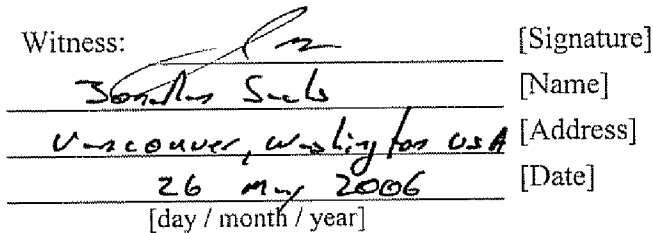 Witness: [Signature]
Jonathan Sachs [Name]
Vancouver, Washington USA [Address]
26 May 2006 [Date]
[day / month / year]